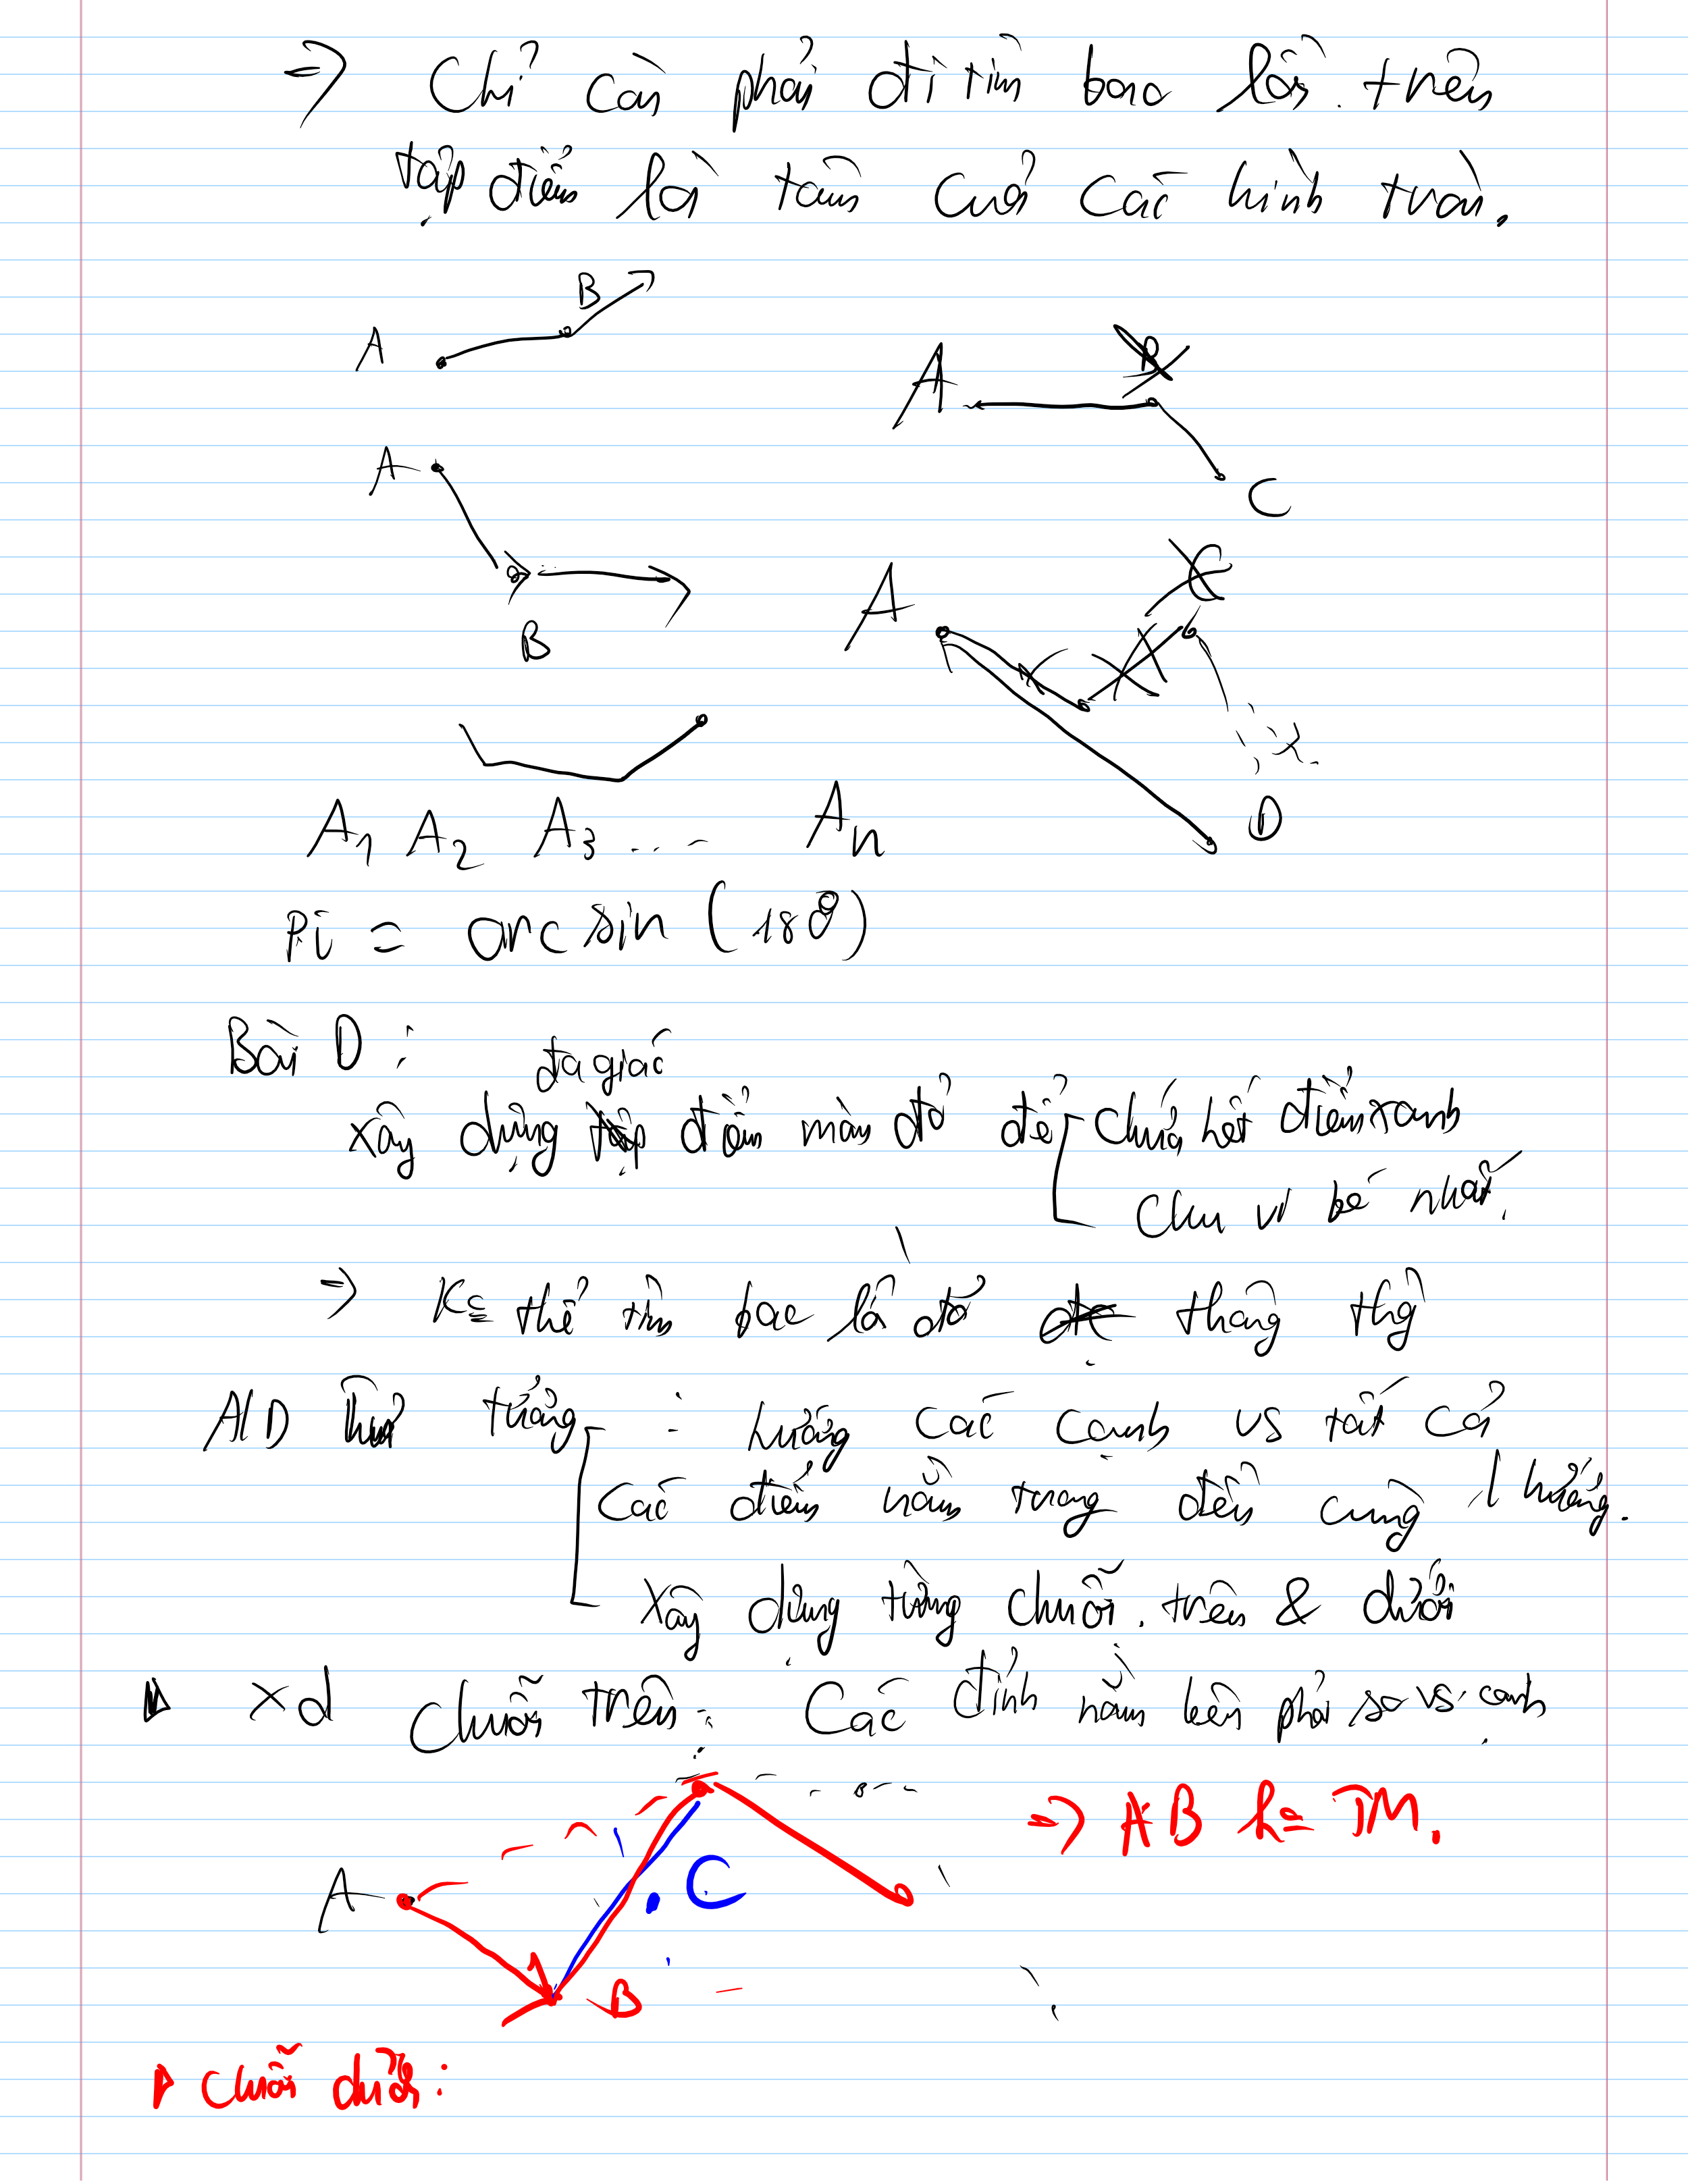 => Chỉ cần phải đi tìm bao lồi trên
tập điểm là tâm của các hình tròn.
A B
A B C
A B
A C
D
A1 A2 A3 .... An
Pi = arc sin (180)
Bài D :
đa giác
xây dựng tập điểm màu đỏ để chứa hết điểm xanh
chu vi bé nhất.
=> K= thể tìm bao lồi đỏ thông thg
A/D tư tưởng : hướng các cạnh vs tất cả
các điểm nằm trong đều cùng 1 hướng.
Xây dựng từng chuỗi trên & dưới
xd chuỗi trên : Các đỉnh nằm bên phải so vs cạnh
=> AB k= TM.
A
C
B
chuỗi dưới :